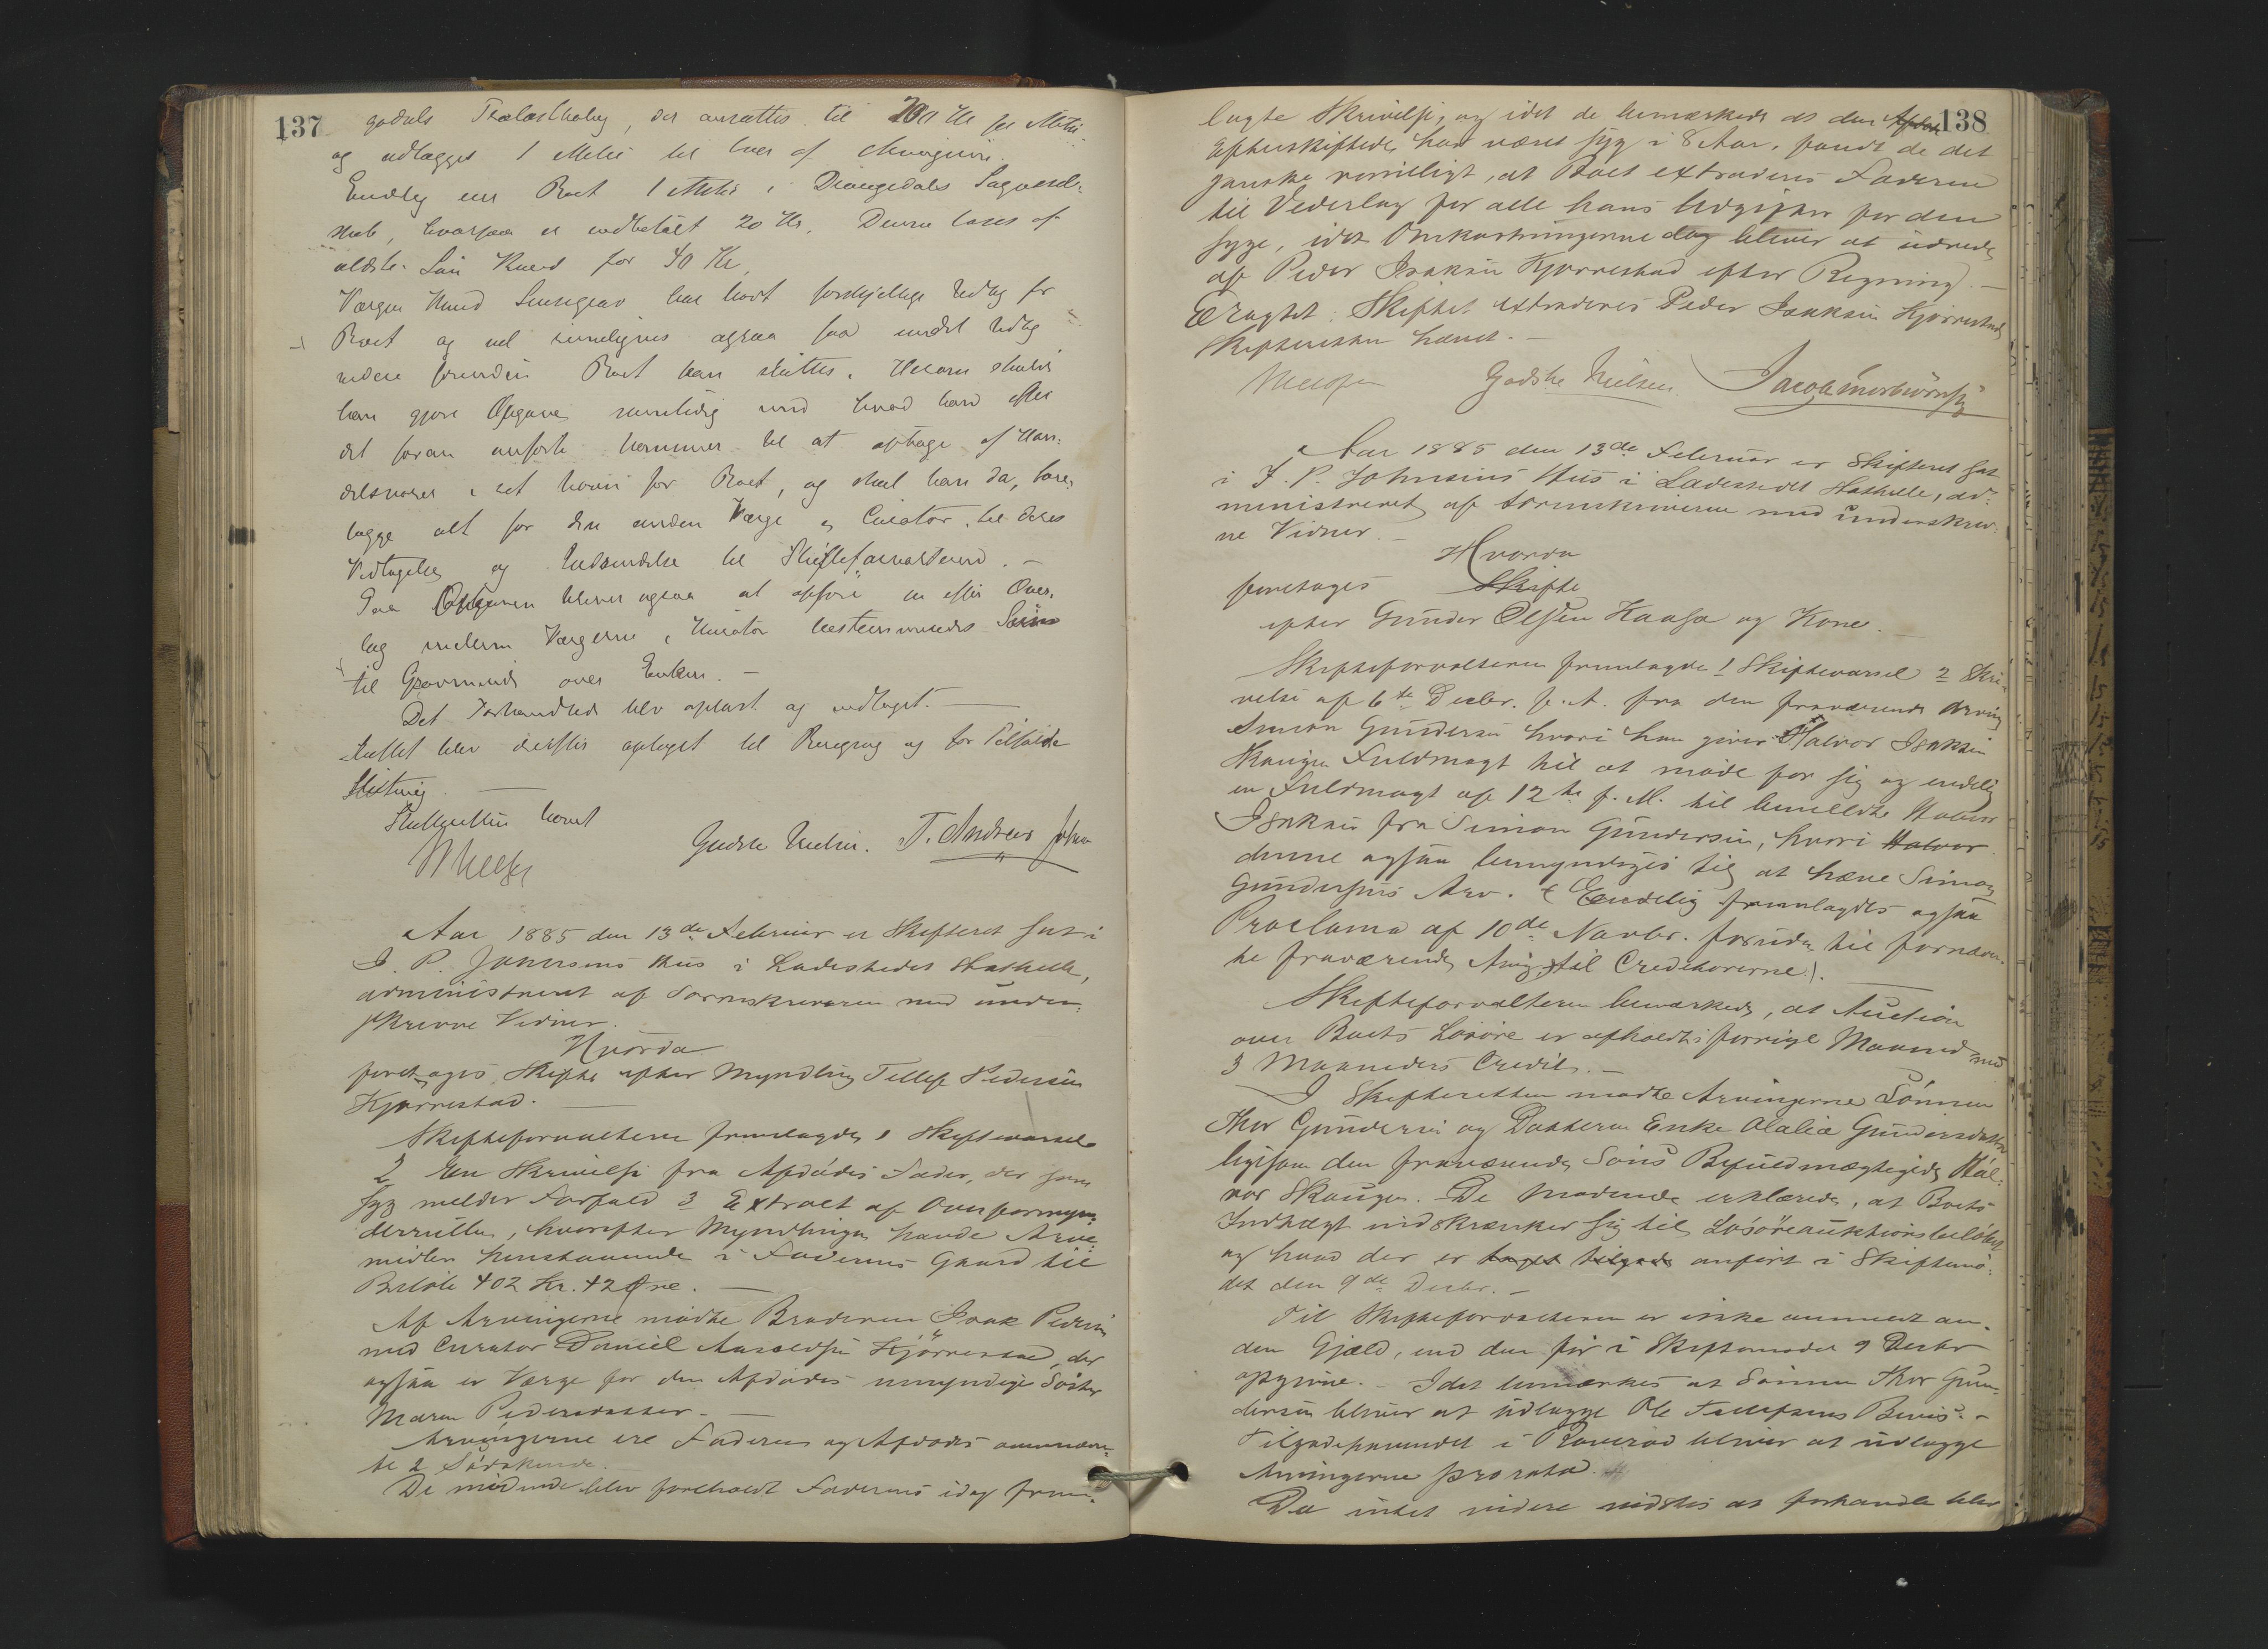 137
godsets Trælasthandel, der ansættes til 200 Kr per Actie
og udlægges 1 Actie til hver af Arvingerne.
Endelig eier Boet 1 Actie i Drangedals Sagbrugs-
skab, hvorpaa er indbetalt 20 Kr. Denne loses af
ældste Søn Knud for 40 Kr.
Værgen Knud har havt forskjellige Udlæg for
Boet og vel rimeligvis ogsaa faa endel Udlæg
videre forinden Boet kan sluttes. Herom skulde
han gjøre Opgave samtidig med hvad han efter
det foran anførte kommer til at optage af Han-
delsvarer i et havn for Boet, og skal han da, fore-
lægge alt for den anden Værge og Curator til deres
Vedtagelse og Indsendelse til Skifteforvalteren. -
Paa Opgaven bliver ogsaa at opføre en efter Over-
læg mellem Værgerne, Kurator bestemmende Sum
til Gravminde over Enken. -
Det Forhandlede blev oplæst og vedtaget. -
Skiftet blev derefter optaget til Beregning og for Tilfælde
Slutning. -
Skifteretten hævet
Godske Nielsen. T. Andreas Johnsen
Aar 1885 den 13de Februar er Skifteret sat i
J. P. Johnsens Hus i Ladestedet Stathelle,
administreret af Sorenskriveren med under-
skrevne Vidner.
Hvorda
foretages Skifte efter Myndling Tellef Pedersen
Kjørrestad. -
Skifteforvalteren fremlagde 1 Skiftevarsel
2 En Skrivelse fra Afdødes Fader, der som
syg melder Forfald 3 Extract af Overformyn-
derrullen, hvorefter Myndlingen havde Arve-
midler henstaaende i Faderens Gaard til
Beløb 402 Kr. 42 Øre. -
Af Arvingerne mødte Broderen Isak Pedersen
med Curator Daniel Anscoldsen Kjørrestad, der
ogsaa er Værge for den Afdødes umyndige Søster
Maren Pedersdatter. -
Arvingerne ere Faderen og Afdødes ovennævn-
te 2 Sødskende.
De mødende blev foreholdt Faderens idag frem-
138
lagte Skrivelse, og idet de bemærkede at den Afdø
Efterskiftede har været syg i 8 Aar, fandt de det
ganske rimeligt, at Boet extraderes Faderen
til Vederlag for alle hans Udgifter for den
syge, idet Omkostningerne dog bliver at udrede
af Peder Isaksen Kjørrestad efter Regning. -
Eragtet: Skiftet extraderes Peder Isaksen Kjørrestad
Skifteretten hævet. -
Godske Nielsen. Jacob
Aar 1885 den 13de Februar er Skifteret sat
i J. P. Johnsens Hus i Ladestedet Stathelle, ad-
ministreret af Sorenskriveren med underskrev-
ne Vidner. -
Hvorda
foretages Skifte
efter Gunder Olsen Haasa og Kone. -
Skifteforvalteren fremlagde 1 Skiftevarsel 2 Skri-
velse af 6te Decbr. f. A. fra den fraværende Arving
Simon Gundersen hvori han giver Halvor Isaksen
Skaugen Fuldmagt til at møde for sig og endelig
en Fuldmagt af 12te f. M. til bemeldte Halvor
Isaksen fra Simon Gundersen, hvori Halvor
denne ogsaa bemyndiges til at hæve Simon
Gundersens Arv. (Endelig fremlagdes ogsaa
Proclama af 10de Novbr. foruden til fornævn-
te fraværende Arving, til Creditorerne). -
Skifteforvalteren bemærkede, at Auction
over Boets Løsøre er afholdt i forrige Maaned med
3 Maaneders Credit. -
I Skifteretten mødte Arvingerne Sønnen
Thor Gundersen og Datteren Enke Olalia Gundersdatter
ligesom den fraværende Søns Befuldmægtigede Hal-
vor Skaugen. De Mødende erklærede, at Boets
Indtægt indskrænker sig til Løsøreauktionsbeløbet
og hvad der er taget tilgode anført i Skiftemø-
det den 9de Decbr. -
Til Skifteforvalteren er ikke anmeldt an-
den Gjæld, end den før i Skiftemødet 9 Decbr
opgivne. - Idet bemærkes at Sønnen Thor Gun-
dersen bliver at udlægge Ole Tellefsens Bevis. -
Tilgodehavendet i bliver at udlægge
Arvingerne pro rata.
Da intet videre vidstes at forhandle blev